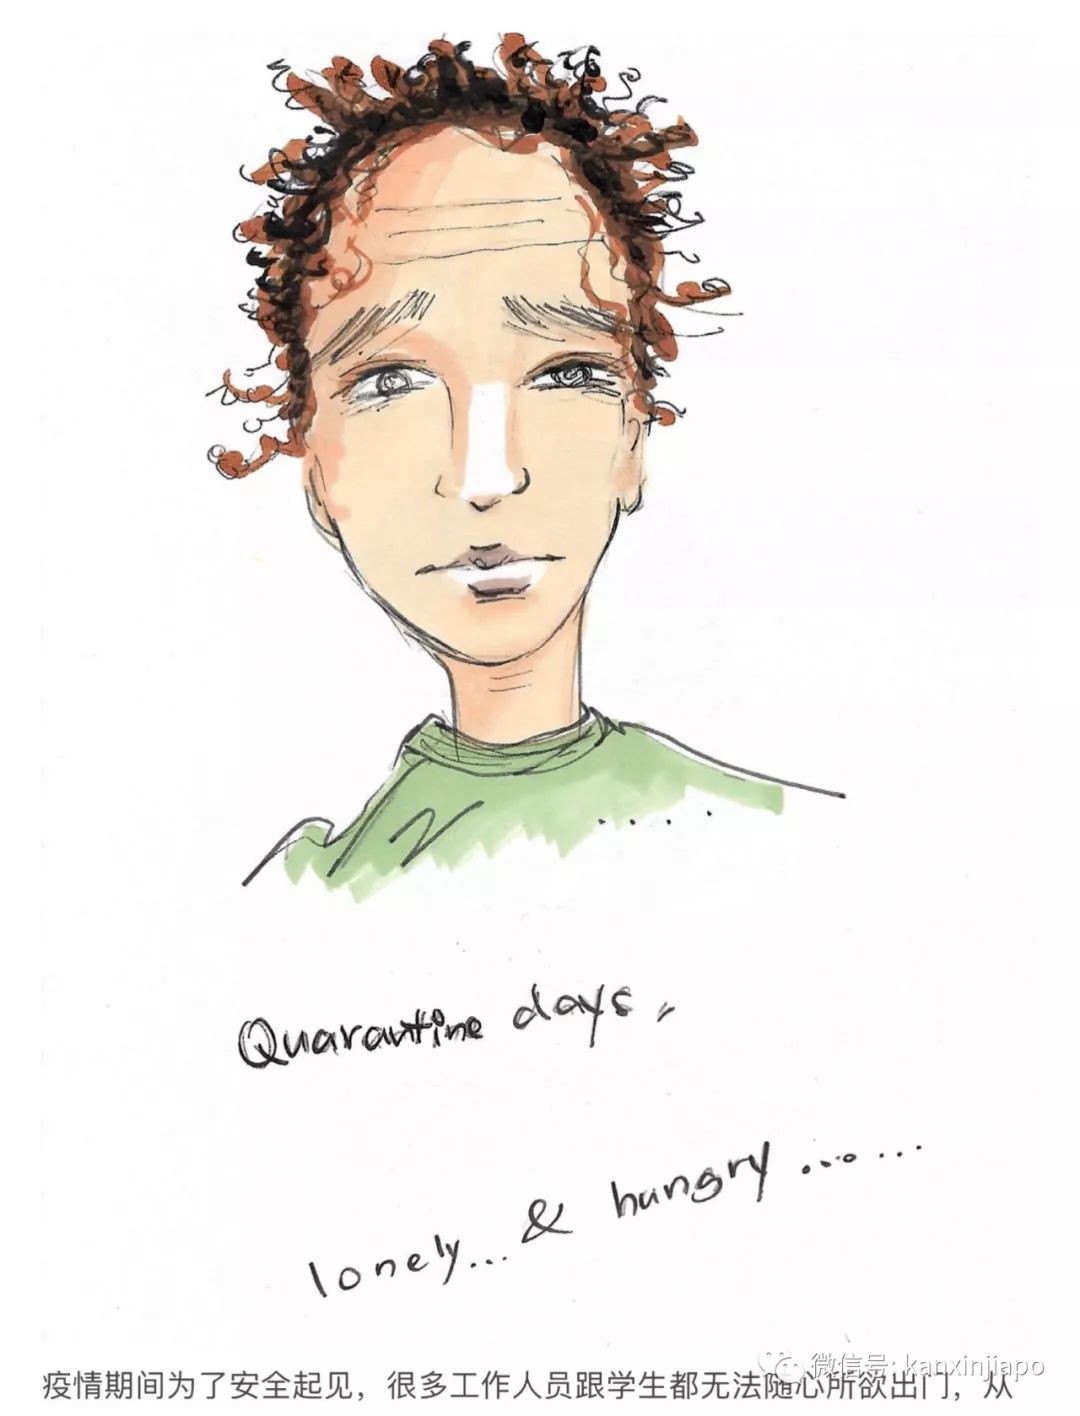 Quarantine days,
lonely... & hungry ... ...
微信号: kanxinjiapo
疫情期间为了安全起见，很多工作人员跟学生都无法随心所欲出门，从